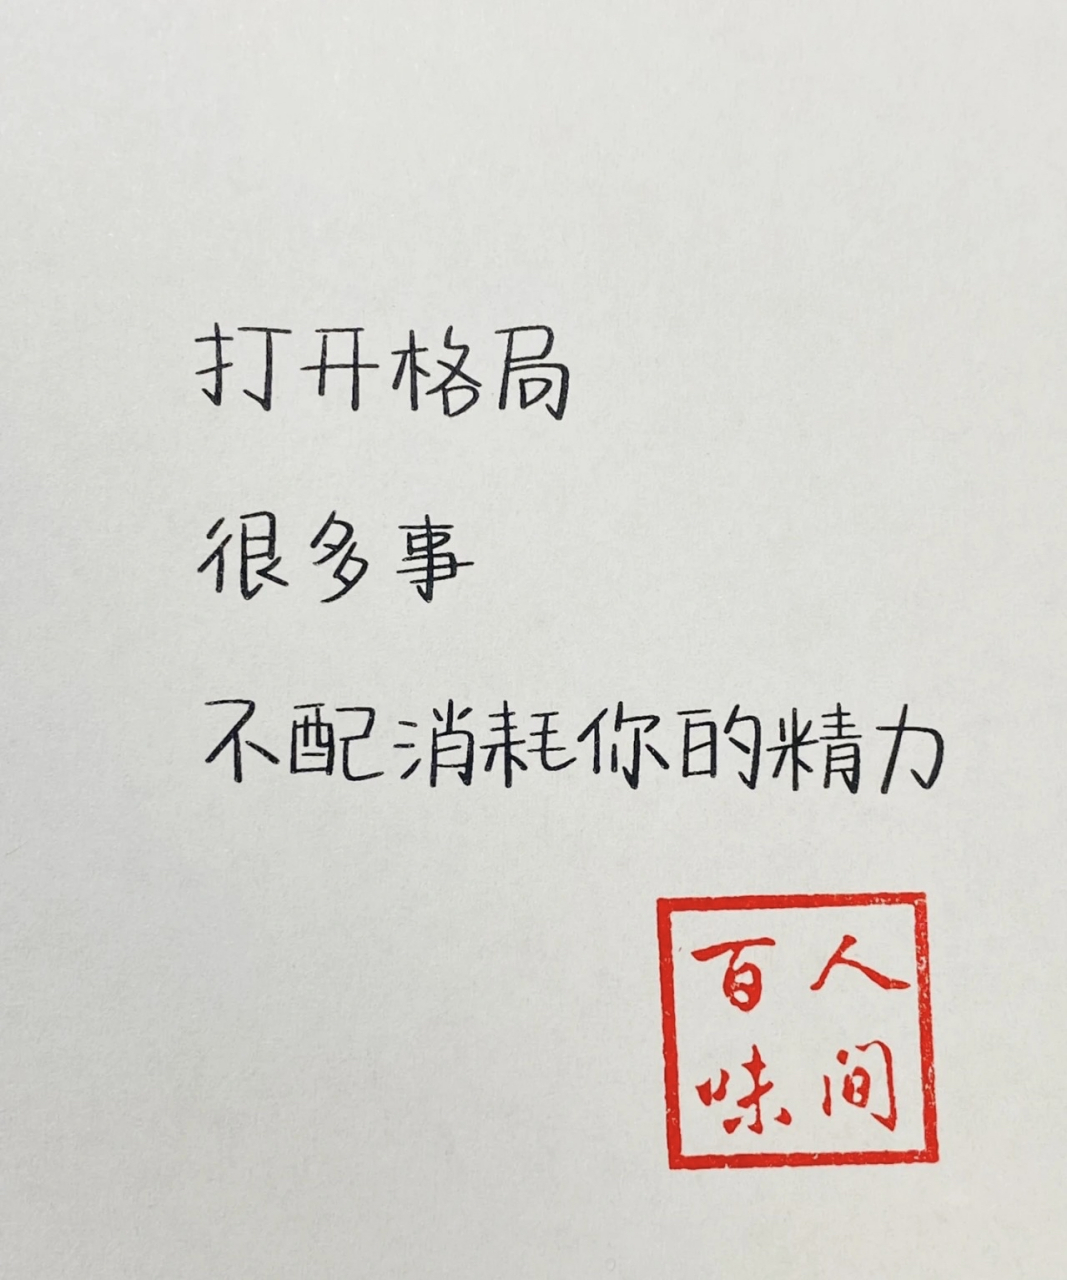 打开格局
很多事
不配消耗你的精力
人间
百味